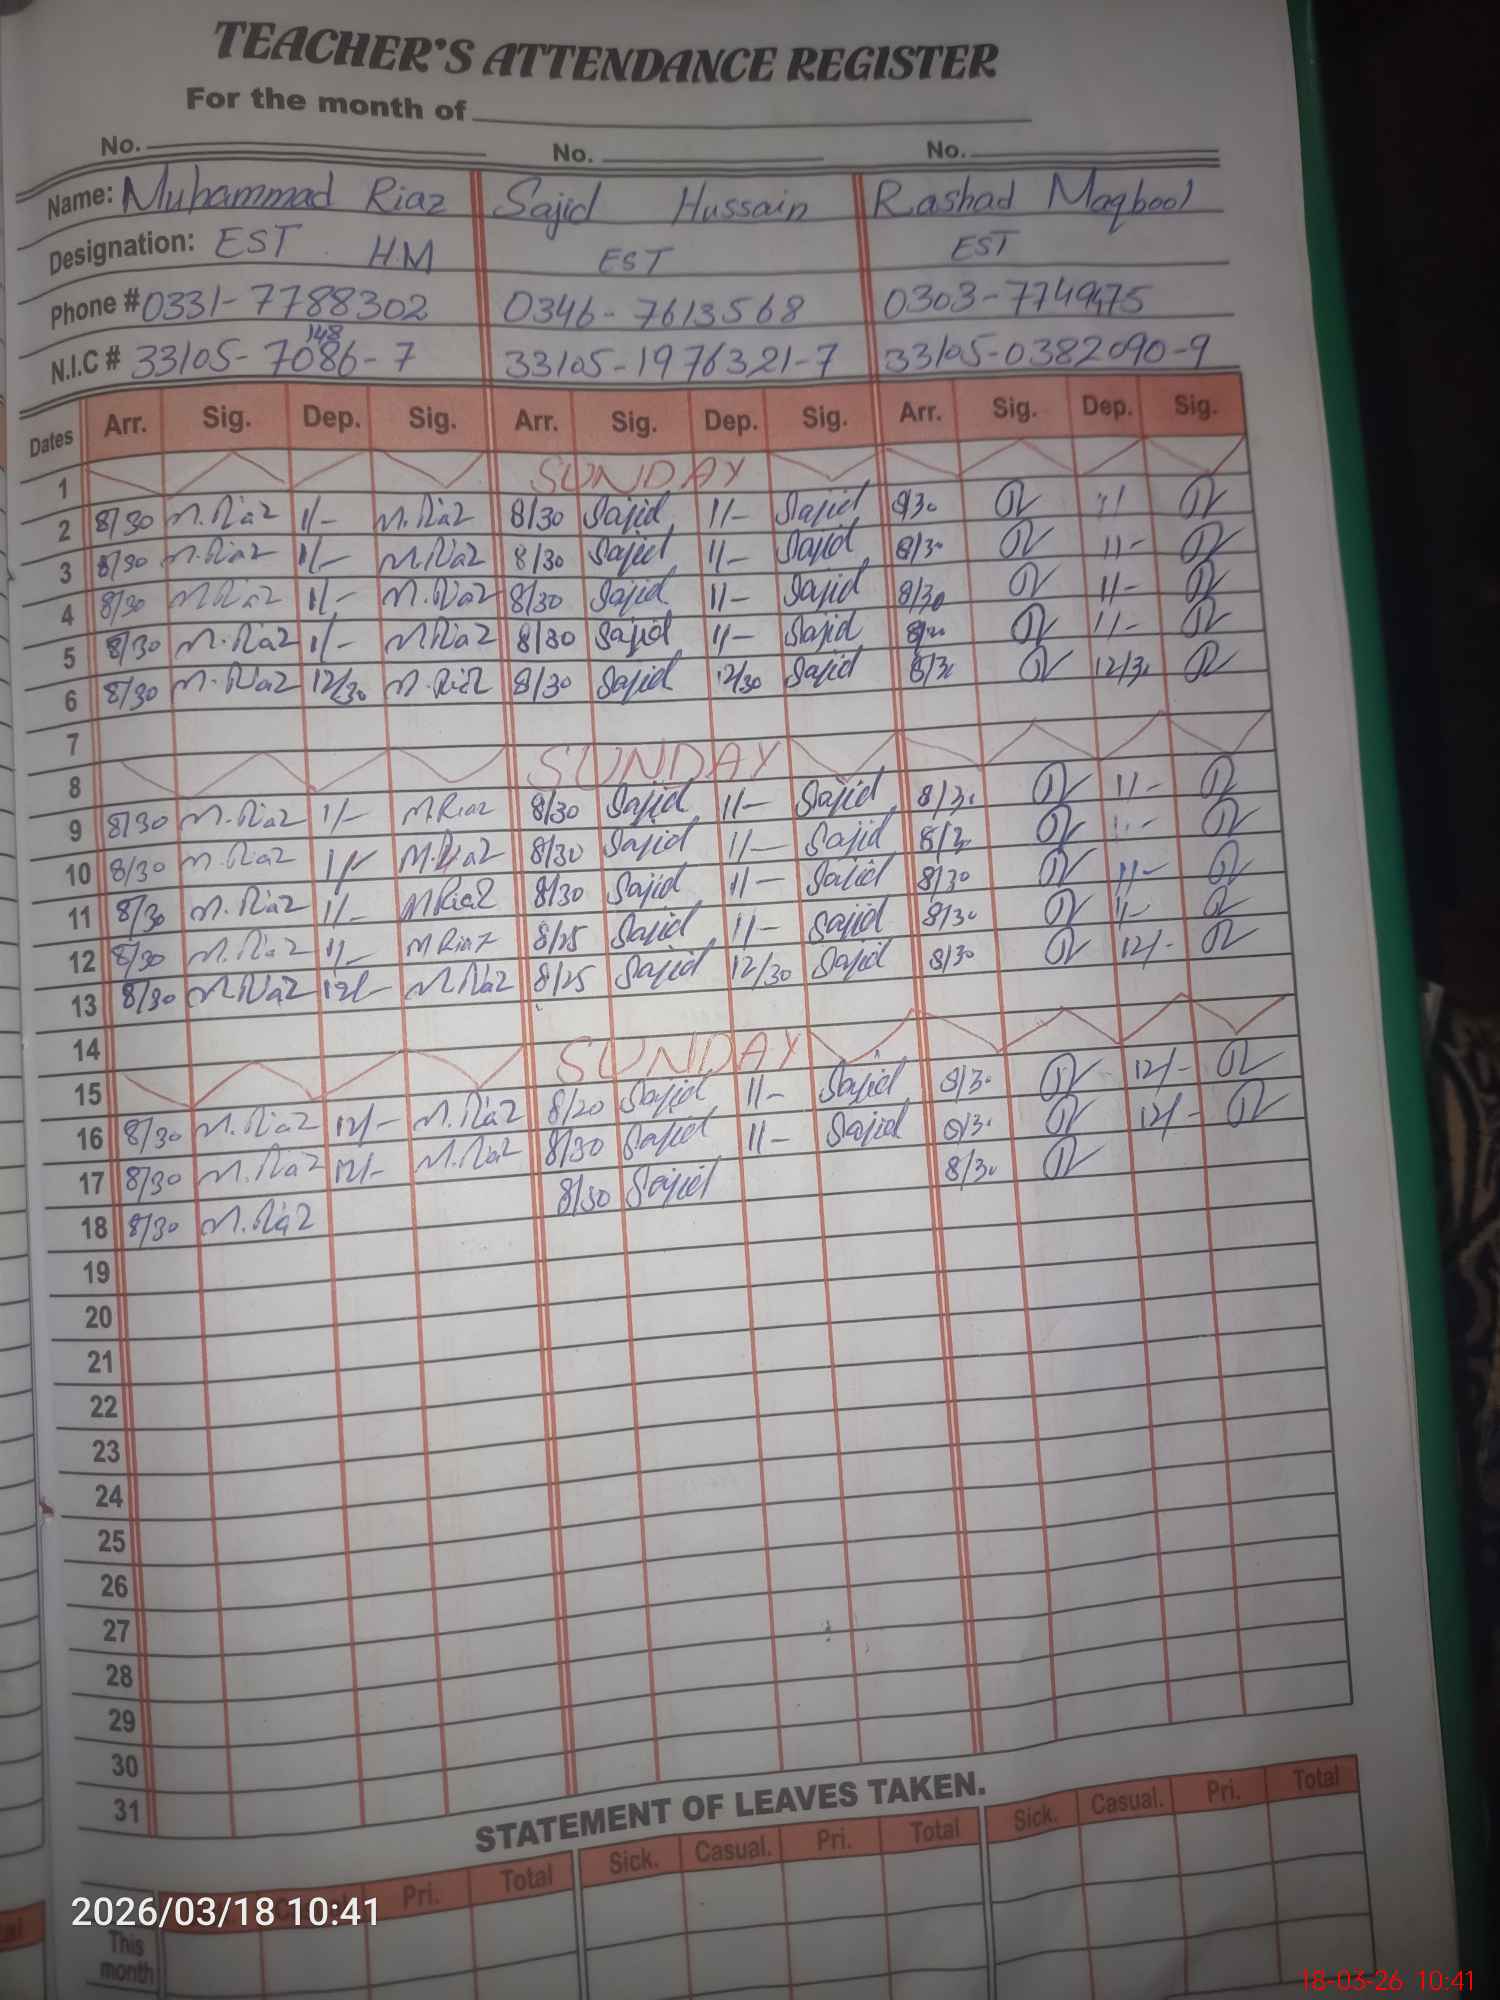 TEACHER'S ATTENDANCE REGISTER
For the month of
No. No. No.
Name: Muhammad Riaz Sajid Hussain Rashad Maqbool
Designation: EST H.M EST EST
Phone # 0331-7788302 0346-7613568 0303-7749475
148
N.I.C # 33105-7086-7 33105-1976321-7 33105-0382090-9
Dates Arr. Sig. Dep. Sig. Arr. Sig. Dep. Sig. Arr. Sig. Dep. Sig.
1 SUNDAY
2 8/30 M.Riaz 11/- M.Riaz 8/30 Sajid 11/- Sajid 8/30 11/-
3 8/30 M.Riaz 11/- M.Riaz 8/30 Sajid 11/- Sajid 8/30 11/-
4 8/30 M.Riaz 11/- M.Riaz 8/30 Sajid 11/- Sajid 8/30 11/-
5 8/30 M.Riaz 11/- M.Riaz 8/30 Sajid 11/- Sajid 8/30 11/-
6 8/30 M.Riaz 12/30 M.Riaz 8/30 Sajid 12/30 Sajid 8/30 12/30
7
8 SUNDAY
9 8/30 M.Riaz 11/- M.Riaz 8/30 Sajid 11/- Sajid 8/30 11/-
10 8/30 M.Riaz 11/- M.Riaz 8/30 Sajid 11/- Sajid 8/30 11/-
11 8/30 M.Riaz 11/- M Riaz 8/30 Sajid 11/- Sajid 8/30 11/-
12 8/30 M.Riaz 11/- M Riaz 8/25 Sajid 11/- Sajid 8/30 11/-
13 8/30 M.Riaz 12/- M.Riaz 8/25 Sajid 12/30 Sajid 8/30 12/-
14
15 SUNDAY
16 8/30 M.Riaz 12/- M.Riaz 8/20 Sajid 11/- Sajid 8/30 12/-
17 8/30 M.Riaz 12/- M.Riaz 8/30 Sajid 11/- Sajid 8/30 12/-
18 8/30 M.Riaz 8/30 Sajid 8/30
19
20
21
22
23
24
25
26
27
28
29
30
31
STATEMENT OF LEAVES TAKEN.
Pri. Total Sick. Casual. Pri. Total Sick. Casual. Pri. Total
This month
2026/03/18 10:41
18-03-26 10:41